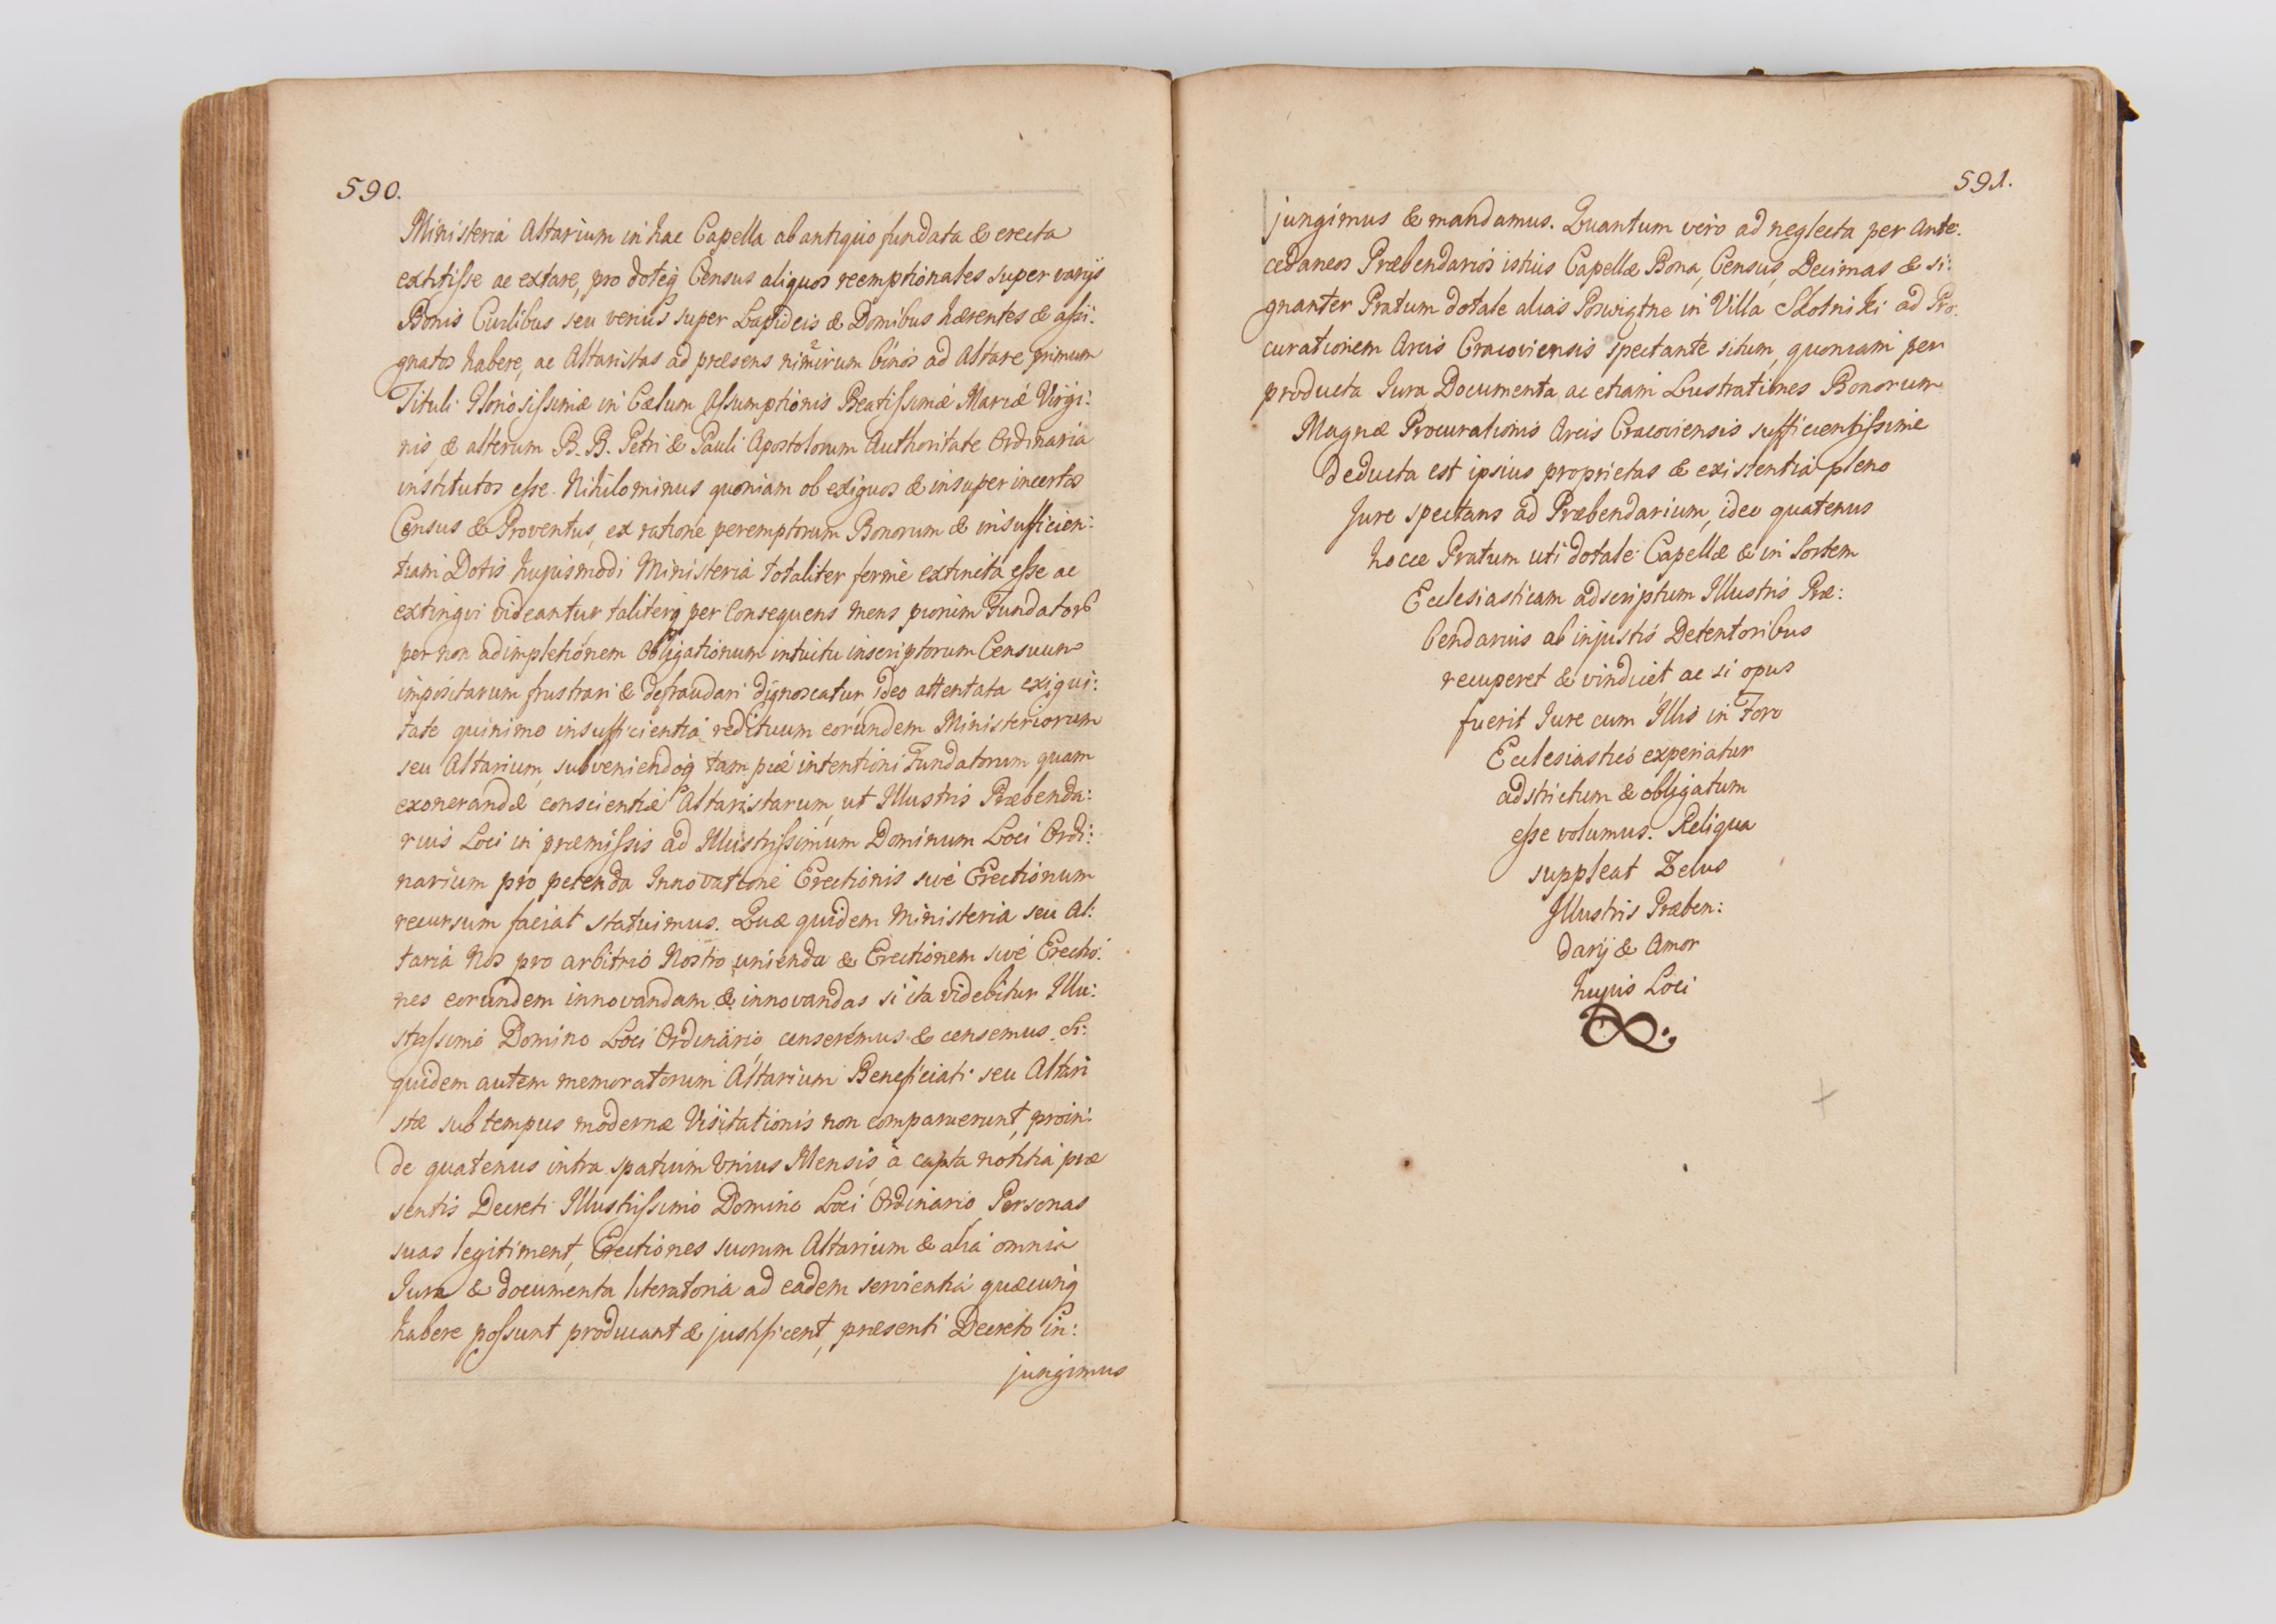 590.
Ministeria Altarium in hac Capella ab antiquo fundata & erecta
extitisse ac extare, pro doteq Census aliquos reemptionales super varijs
Bonis Civilibus seu verius super Lapideis & Domibus hærentes & assi:
gnatos habere, ac Altaristas ad præsens nimirum binos ad Altare primum
Tituli Gloriosissimæ in Cælum Assumptionis Beatissimæ Mariæ Virgi:
nis, & alterum B. B. Petri & Pauli Apostolorum Authoritate Ordinaria
institutos esse. Nihilominus quoniam ob exiguos & insuper incertos
Census & Proventus, ex ratione peremptorum Bonorum & insufficien:
tiam Dotis hujusmodi Ministeria totaliter ferme extincta esse ac
extingvi videantur taliterq per Consequens mens piorum Fundatorū
per non adimpletionem Obligationum intuitu inscriptorum Censuum
impositarum frustrari & defraudari dignoscatur, ideo attentata exigui:
tate quinimo insufficientia redituum eorundem Ministeriorum
seu Altarium, subveniendoq tam piæ intentioni Fundatorum, quam
exonerandæ conscientiæ Altaristarum, ut Illustris Præbenda:
rius Loci in præmissis ad Illustrissimum Dominum Loci Ordi:
narium pro petenda Innovatione Erectionis sive Erectionum
recursum faciat statuimus. Quæ quidem Ministeria seu Al:
taria Nos pro arbitrio Nostro unienda & Erectionem sive Erectio:
nes eorundem innovandam & innovandas si ita videbitur Illu:
strissimo Domino Loci Ordinario censeremus & censemus. Si:
quidem autem memoratorum Altarium Beneficiati seu Altari
stæ sub tempus modernæ Visitationis non comparuerunt, proin:
de quatenus intra spatium Unius Mensis, à capta notitia præ
sentis Decreti Illustrissimo Domino Loci Ordinario Personas
suas legitiment, Erectiones suorum Altarium & alia omnia
Jura & documenta literatoria ad eadem servientia quæcunq
habere possunt producant & justificent, præsenti Decreto in:
jungimus
591.
jungimus & mandamus. Quantum vero ad neglecta per Ante:
cedaneos Præbendarios istius Capellæ Bona, Census, Decimas & si:
gnanter Pratum dotale alias Poswigtne in Villa Skotniki ad Pro:
curationem Arcis Cracoviensis spectante situm, quoniam per
producta Jura Documenta ac etiam Lustrationes Bonorum
Magnæ Procurationis Arcis Cracoviensis sufficientissime
deducta est ipsius proprietas & existentia pleno
Jure spectans ad Præbendarium, ideo quatenus
hocce Pratum uti dotale Capellæ & in Sortem
Ecclesiasticam adscriptum Illustris Præ:
bendarius ab injustis Detentoribus
recuperet & vindicet ac si opus
fuerit Jure cum Illis in Foro
Ecclesiastico experiatur
adstrictum & obligatum
esse volumus. Reliqua
suppleat Zelus
Illustris Præben:
darij & Amor
hujus Loci